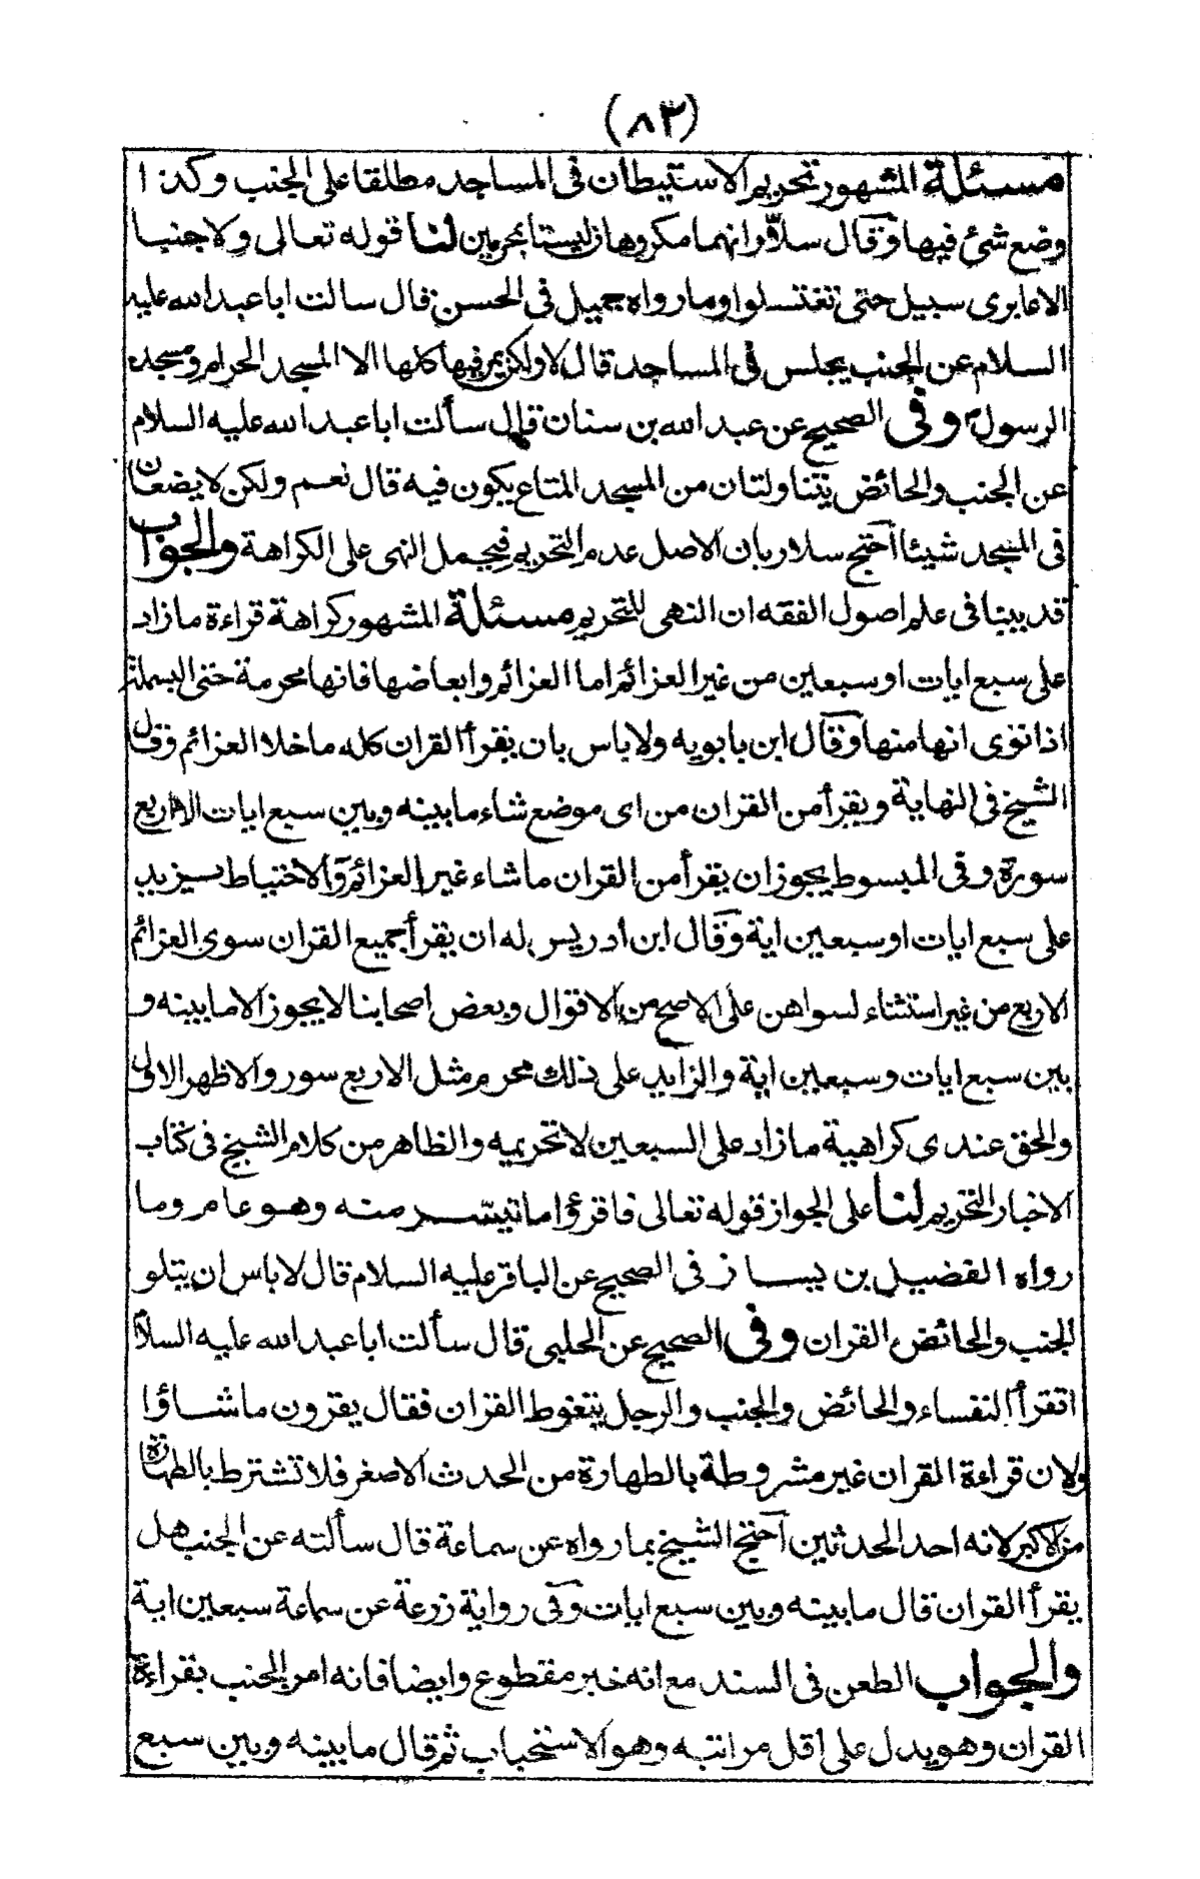 (٨٣)
مسئلة المشهور تحريم الاستيطان فى المساجد مطلقا على الجنب وكذا
وضع شئ فيها وقال سلار انهما مكروهان ليستا بمحرمين لنا قوله تعالى ولا جنبا
الا عابرى سبيل حتى تغتسلوا وما رواه جميل فى الحسن قال سالت ابا عبد الله عليه
السلام عن الجنب يجلس فى المساجد قال لا ولكن يمر فيها كلها الا المسجد الحرام ومسجد
الرسولؐ وفى الصحيح عن عبد الله بن سنان قال سألت ابا عبد الله عليه السلام
عن الجنب والحائض يتناولتان من المسجد المتاع يكون فيه قال نعم ولكن لا يضعان
فى المسجد شيئا احتج سلار بان الاصل عدم التحريم فيحمل النهى على الكراهة والجواب
قد بينا فى علم اصول الفقه ان النهى للتحريم مسئلة المشهور كراهة قراءة ما زاد
على سبع ايات او سبعين من غير العزائم اما العزائم وابعاضها فانها محرمة حتى البسملة
اذا نوى انها منها وقال ابن بابويه ولا باس بان يقرأ القران كله ما خلا العزائم وقال
الشيخ فى النهاية ويقرأ من القران من اى موضع شاء ما بينه وبين سبع ايات الا اربع
سورة وفى المبسوط يجوز ان يقرأ من القران ما شاء غير العزائم والاحتياط يزيد
على سبع ايات او سبعين اية وقال ابن ادريس له ان يقرأ جميع القران سوى العزائم
الاربع من غير استثناء لسواهن على الاصح من الاقوال وبعض اصحابنا لا يجوز الا ما بينه و
بين سبع ايات وسبعين اية والزايد على ذلك محرم مثل الاربع سور والاظهر الاول
والحق عندى كراهية ما زاد على السبعين لا تحريمه والظاهر من كلام الشيخ فى كتاب
الاخبار التحريم لنا على الجواز قوله تعالى فاقرؤا ما تيسّر منه وهو عام وما
رواه الفضيل بن يسار فى الصحيح عن الباقر عليه السلام قال لا باس ان يتلو
الجنب والحائض القران وفى الصحيح عن الحلبى قال سألت ابا عبد الله عليه السلا
اتقرأ النفساء والحائض والجنب والرجل يتغوط القران فقال يقرون ما شاؤا
ولان قراءة القران غير مشروطة بالطهارة من الحدث الاصغر فلا تشترط بالطهارة
من الاكبر لانه احد الحدثين احتج الشيخ بما رواه عن سماعة قال سألته عن الجنب هل
يقرأ القران قال ما بينه وبين سبع ايات وفى رواية زرعة عن سماعة سبعين اية
والجواب الطعن فى السند مع انه خبر مقطوع وايضا فانه امر الجنب بقراءة
القران وهو يدل على اقل مراتبه وهو الاستحباب ثم قال ما بينه وبين سبع